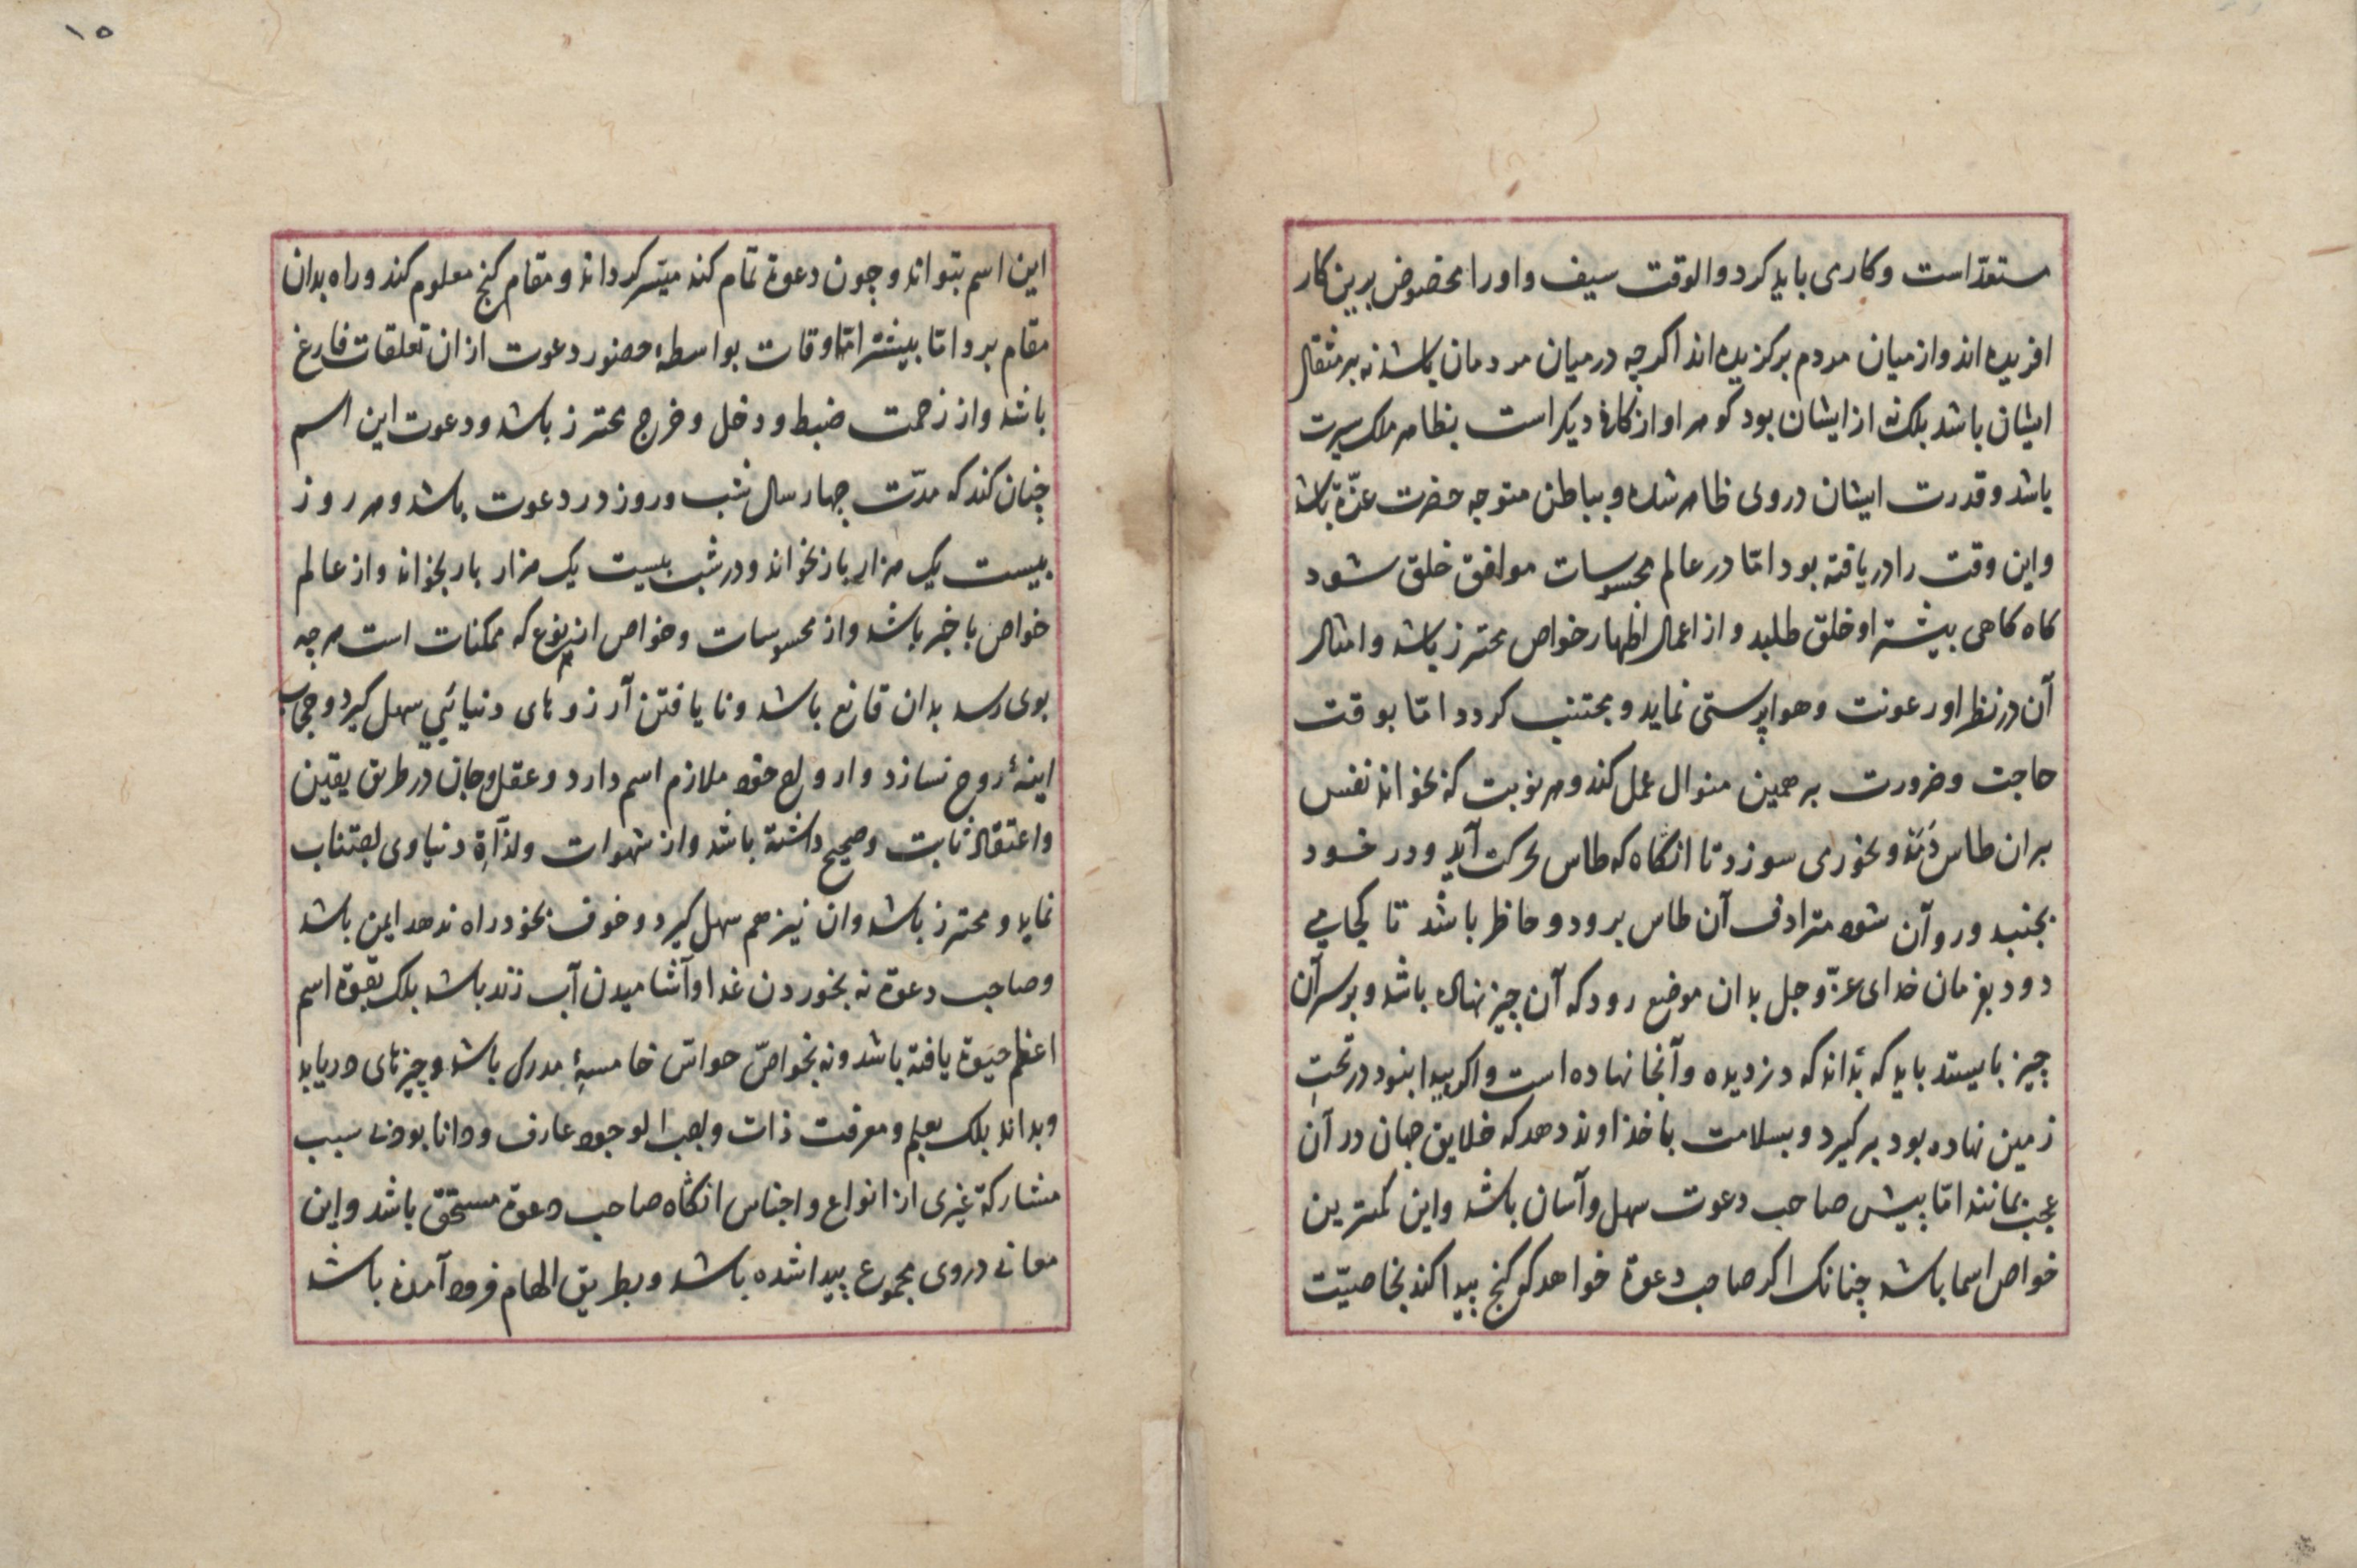 مستعدّ است و کاری باید کرد و الوقت سیف و او را مخصوص برین کار
افریده اند و از میان مردم برکزیده اند اکر چه در میان مردمان باشد نه بر مثقال
ایشان باشد بلک نه از ایشان بود کوهر او از کان دیکر است بظاهر ملک سیرت
باشد و قدرت ایشان در وی ظاهر شده و بباطن متوجه حضرت عزّة باشد
و این وقت را دریافته بود امّا در عالم محسوسات موافق خلق شود
کاه کاهی بیشتر او خلق طلبد و از اعمال اظهار خواص محترز باشد و امثال
آن در نظر او رعونت و هواپرستی نماید و مجتنب کردد امّا بوقت
حاجت و ضرورت بر همین منوال عمل کند و هر نوبت که بخواند نفس
بران طاس دَمَد و بخور می سوزد تا انکاه که طاس بحرکت آید و در خود
بجنبد و روآن شود مترادف آن طاس برود و حاظر باشد تا کجا می
دود بفرمان خدای عزّ و جل بدان موضع رود که آن چیز نهان باشد و بر سر آن
چیز بایستد باید که بَداند که دزدیده و آنجا نهاده است و اکر پیدا نبود در تحتِ
زمین نهاده بود برکیرد و بسلامت با خداوند دهد که خلایق جهان در آن
عجب بمانند امّا پیش صاحب دعوت سهل و آسان باشد و این کمترین
خواص اسما باشد چنانک اکر صاحب دعوة خواهد کی کنج پیدا کند بخاصیّت
۱۵
این اسم بتواند و چون دعوة تمام کند میسّر کرداند و مقام کنج معلوم کند و راه بدان
مقام برد امّا بیشتر اوقات بواسطهٔ حضور دعوت از ان تعلقات فارغ
باشد و از زحمت ضبط و دخل و خرج محترز باشد و دعوت این اسم
چنان کند که مدّت چهار سال شب و روز در دعوت باشد و هر روز
بیست یک هزار بار بخواند و در شب بیست یک هزار بار بخواند و از عالم
خواص با خبر باشد و از محسوسات و خواص از هر نوع که ممکنات است هر چه
بوی رسد بدان قانع باشد و نا یافتن آرزوهای دنیائی سهل کیرد و حجاب
اینهٔ روح نسازد و ارواح خود ملازم اسم دارد و عقل و جان در طریق یقین
و اعتقاد ثابت و صحیح داشته باشد و از شهوات و لذّآةِ دنیاوی اجتناب
نماید و محترز باشد و ان نیز هم سهل کیرد و خوف بخود راه ندهد ایمن باشد
و صاحب دعوة نه بخوردن غذا و آشامیدن آب زنده باشد بلک بقوة اسم
اعظم حیوة یافته باشد و نه بخواصّ حواسّ خامسهٔ مدرک باشد و چیزهای دریابد
و بداند بلک بعلم و معرفت ذات واجب الوجود عارف و دانا بود بی سبب
مشارکة غیری از انواع و اجناس انکاه صاحب دعوة مستحق باشد و این
معانی در وی مجموع پیدا شده باشد و بطریق الهام فرود آمده باشد